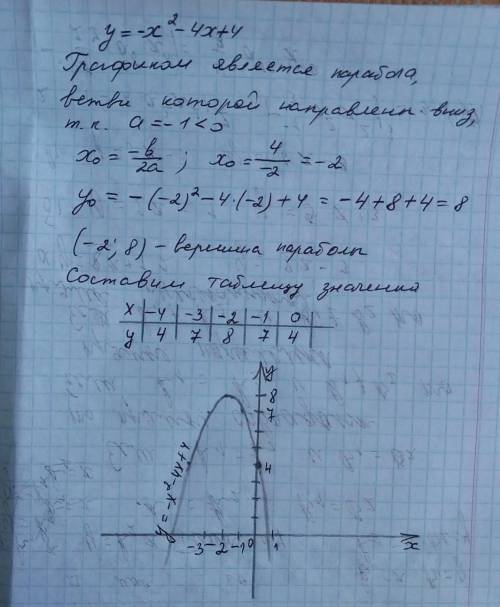 y = -x² - 4x + 4
Графиком является парабола,
ветви которой направлены вниз,
т.к. a = -1 < 0
x₀ = -b/2a ; x₀ = 4/-2 = -2
y₀ = -(-2)² - 4·(-2) + 4 = -4 + 8 + 4 = 8
(-2; 8) - вершина параболы
Составим таблицу значений
x | -4 | -3 | -2 | -1 | 0
y | 4 | 7 | 8 | 7 | 4
y
8
7
4
y = -x² - 4x + 4
-3 -2 -1 0 1 x